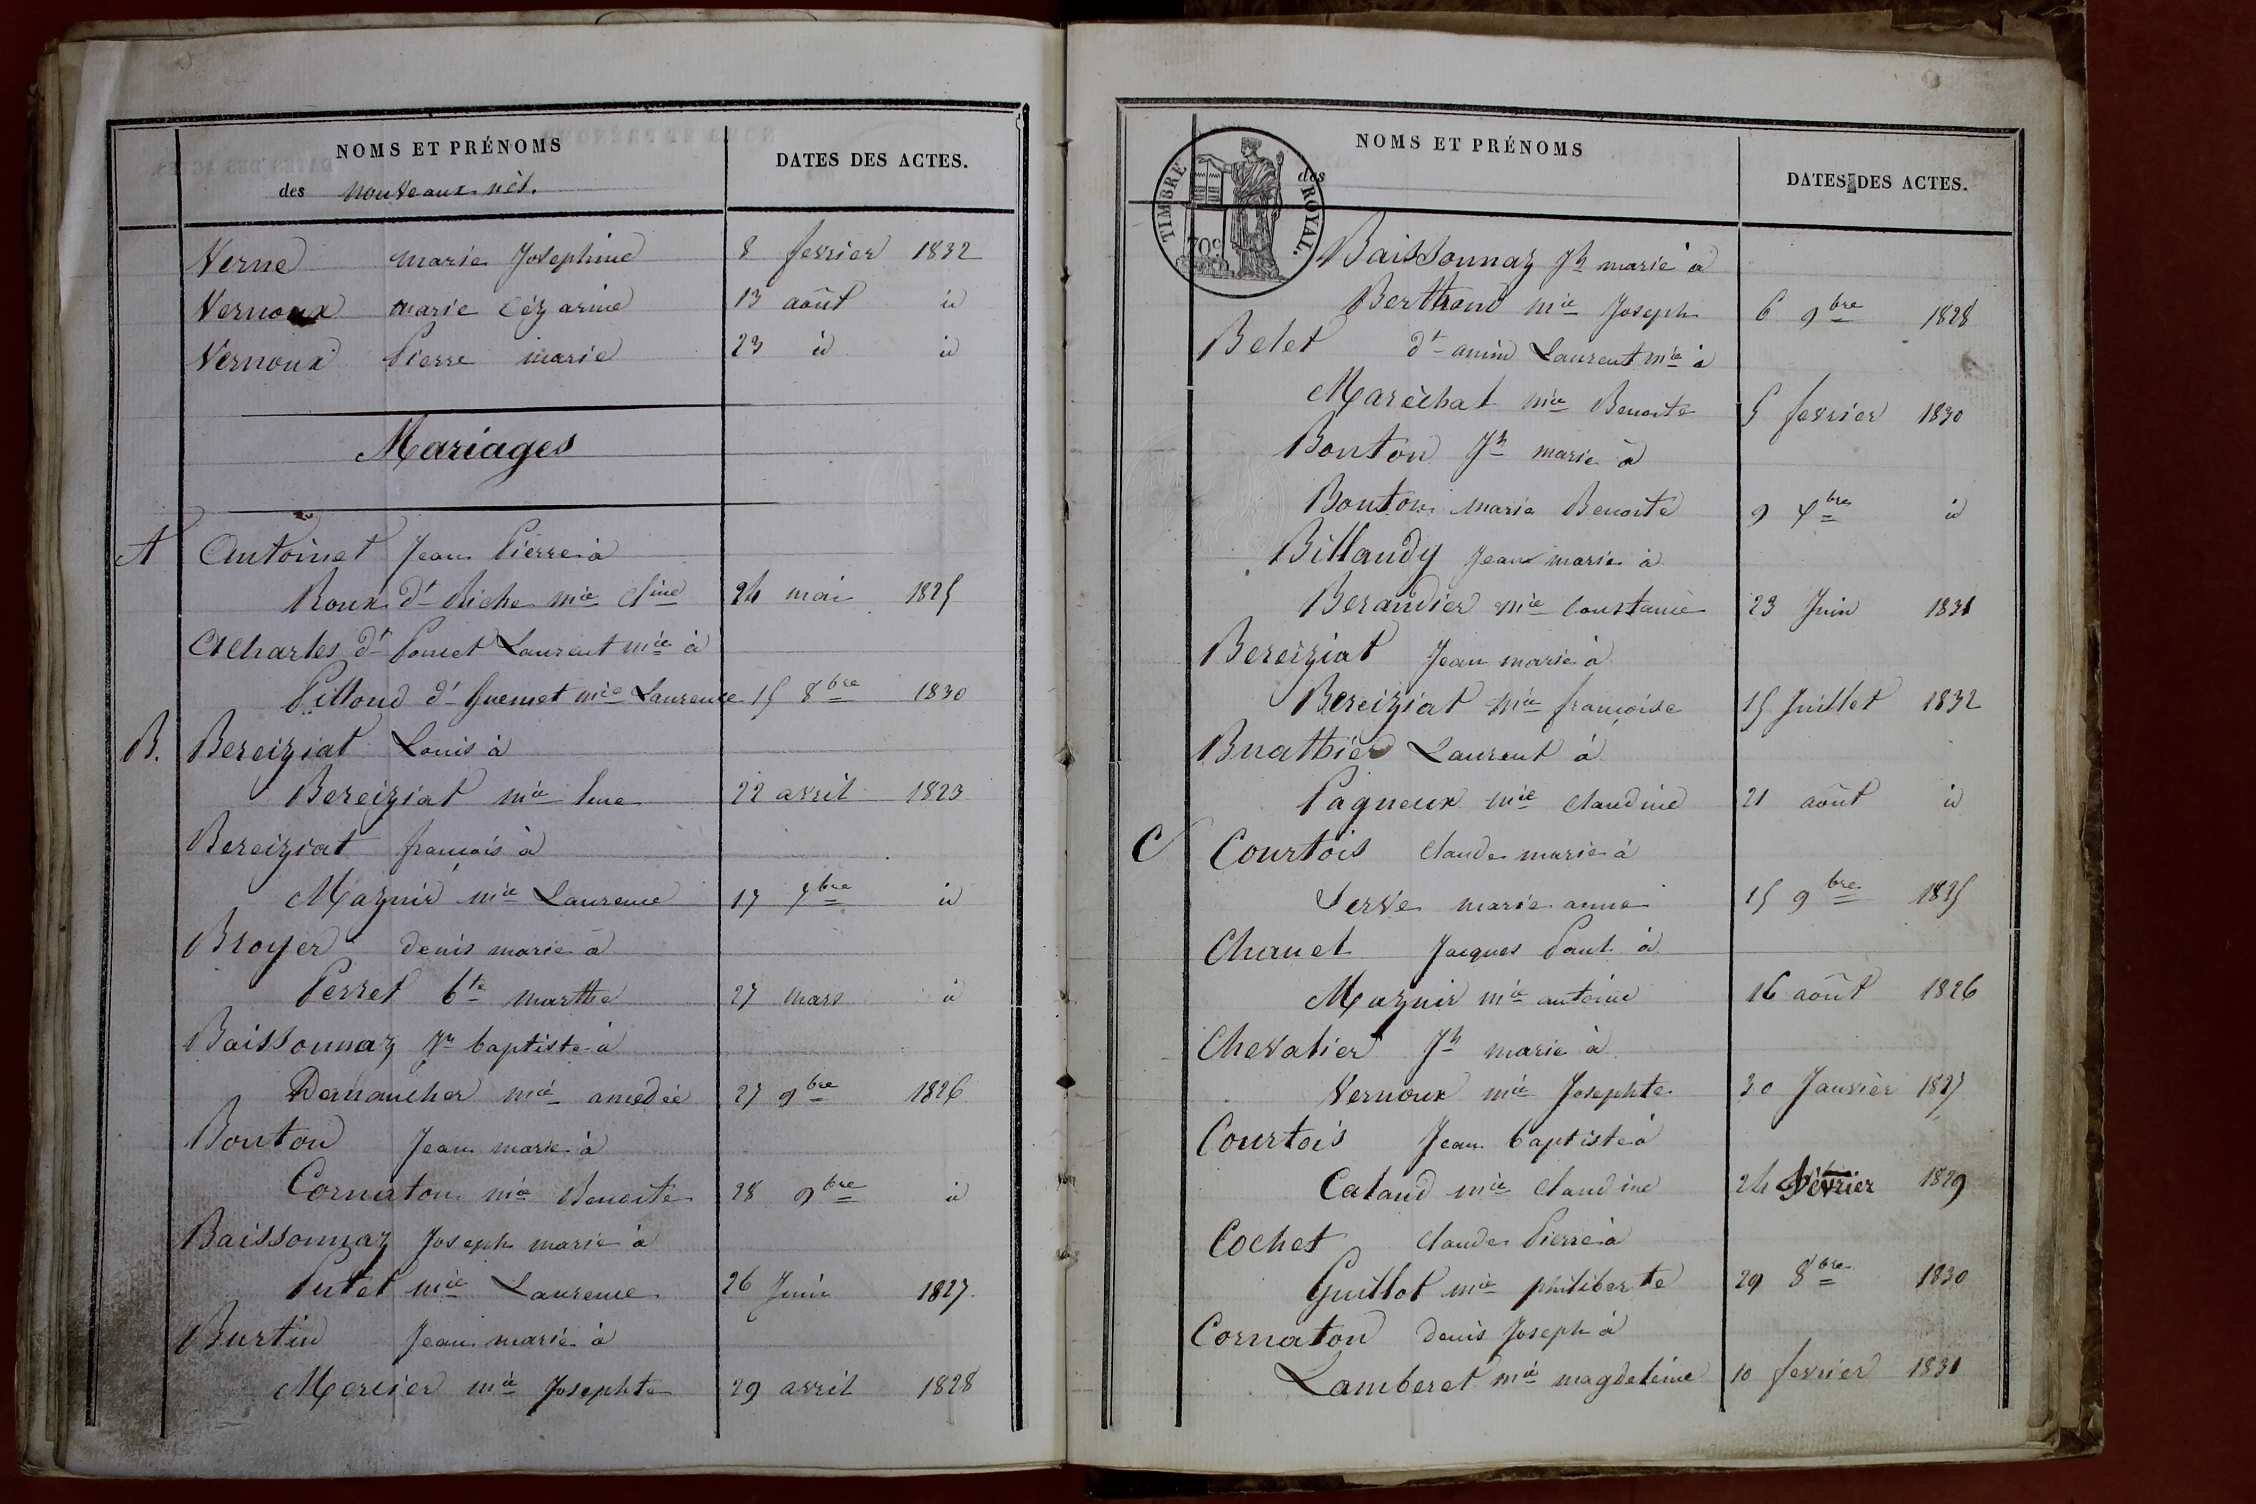 NOMS ET PRÉNOMS
des nouveaux nés.
DATES DES ACTES.
Verne marie Josephine 8 fevrier 1832
Vernoux marie Cézarine 13 août id
Vernoux Pierre marie 23 id id
Mariages
A Antoinet Jean Pierre à
Roux dt Riche mie Cline 24 mai 1825
Acharles dt Poncet Laurent mie à
Pillond dt Guemet mie Laurence 15 8bre 1830
B. Bereiziat Louis à
Bereiziat mie 22 avril 1823
Bereiziat françois à
Maznir mie Laurence 17 7bre id
Broyer denis marie à
Perret bte marthe 27 mars id
Baissonnaz Jn baptiste à
Damancher mie amedée 27 9bre 1826
Bouton Jean marie à
Cornaton mie Benoite 28 9bre id
Baissonnaz Joseph marie à
Putet mie Laurence 26 Juin 1827
Burtin Jean marie à
Mercier mie Josephte 29 avril 1828
TIMBRE ROYAL.
70c
NOMS ET PRÉNOMS
des
DATES DES ACTES.
Baissonnaz Jh marie à
Berthond mie Joseph 6 9bre 1828
Belet dt Laurent mie à
Maréchal mie Benoite 5 fevrier 1830
Bouton Jh marie à
Bouton marie Benoite 9 Xbre id
Billaudy Jean marie à
Beraudier mie Constance 23 Juin 1831
Bereiziat Jean marie à
Bereiziat mie françoise 15 Juillet 1832
Buathier Laurent à
Pagneux mie Claudine 21 août id
C Courtois Claude marie à
Serve marie anne 15 9bre 1825
Chanel Jacques Paul à
Maznir mie antoine 16 août 1826
Chevalier Jh marie à
Vernoux mie Josephte 30 Janvier 1827
Courtois Jean baptiste à
Caland mie Claudine 24 février 1829
Cochet Claude Pierre à
Guillot mie philiberte 29 8bre 1830
Cornaton denis Joseph à
Lamberet mie magdeleine 10 fevrier 1831